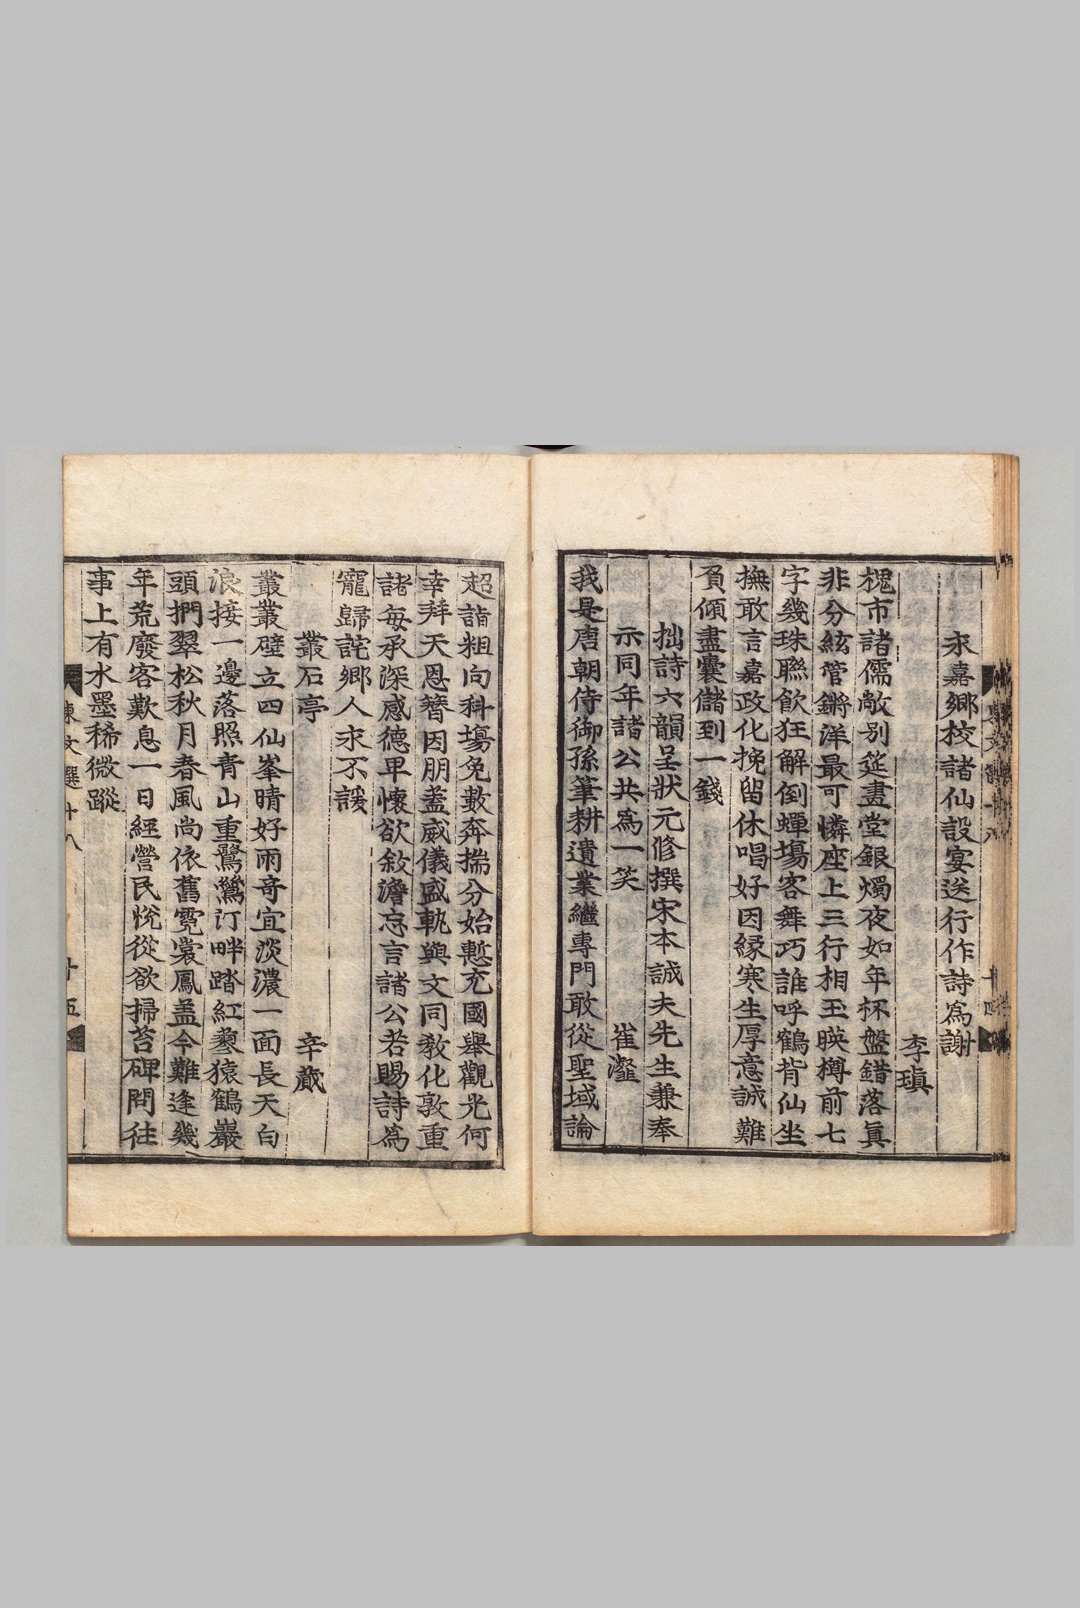 永嘉鄉校諸仙設宴送行作詩爲謝
李瑱
槐市諸儒敞別筵畫堂銀燭夜如年杯盤錯落眞
非分絃管鏘洋最可憐座上三行相玉暎樽前七
字幾珠聯飮狂解倒蟬塲客舞巧誰呼鶴背仙坐
撫敢言嘉政化挽留休唱好因緣寒生厚意誠難
負傾盡囊儲到一錢
拙詩六韻呈狀元修撰宋本誠夫先生兼奉
示同年諸公共爲一笑
崔瀣
我是唐朝侍御孫筆耕遺業繼專門敢從聖域論
超詣粗向科塲免數奔揣分始慙充國擧觀光何
幸拜天恩簪因朋盍威儀盛軌與文同敎化敦重
諸每承深感德畢懷欲敍澹忘言諸公若賜詩爲
寵歸詑鄉人求不諼
叢石亭
辛蕆
叢叢壁立四仙峯晴好雨奇宜淡濃一面長天白
浪接一邊落照靑山重鷺鷥汀畔踏紅蓼猿鶴巖
頭捫翠松秋月春風尙依舊霓裳鳳盖今難逢幾
年荒廢客歎息一日經營民悅從欲掃苔碑問往
事上有水墨稀微蹤
東文選十八
十五